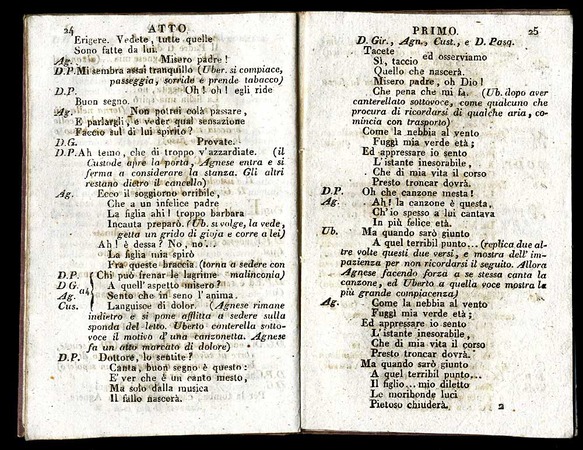 24 ATTO
Erigere. Vedete, tutte quelle
Sono fatte da lui.
Ag. Misero padre!
D.P. Mi sembra assai tranquillo (Uber. si compiace,
passeggia, sorride e prende tabacco)
D.P. Oh! oh! egli ride
Buon segno.
Ag. Non potrei colà passare,
E parlargli, e veder qual sensazione
Faccio sul di lui spirito?
D.G. Provate.
D.P. Ah temo, che di troppo v'azzardiate. (il
Custode apre la porta, Agnese entra e si
ferma a considerare la stanza. Gli altri
restano dietro il cancello)
Ag. Ecco il soggiorno orribile,
Che a un infelice padre
La figlia ahi! troppo barbara
Incauta preparò. (Ub. si volge, la vede,
getta un grido di gioja e corre a lei)
Ah! è dessa? No, no..
La figlia mia spirò
Fra queste braccia (torna a sedere con
D.P. Chi può frenar le lagrime malinconia)
D G. a4 A quell'aspetto misero?
Ag. Sento che in seno l'anima.
Cus. Languisce di dolor. (Agnese rimane
indietro e si pone afflitta a sedere sulla
sponda del letto. Uberto canterella sotto-
voce il motivo d'una canzonetta. Agnese
fa un atto marcato di dolore)
D.P. Dottore, lo sentite?
Canta, buon segno è questo:
E' ver che è un canto mesto,
Ma solo dalla musica
Il fallo nascerà.
PRIMO. 25
D. Gir., Agn., Cust., e D. Pasq.
Tacete
ed osserviamo
Sì, taccio
Quello che nascerà.
Misero padre, oh Dio!
Che pena che mi fa. (Ub. dopo aver
canterellato sottovoce, come qualcuno che
procura di ricordarsi di qualche aria, co-
mincia con trasporto)
Come la nebbia al vento
Fuggì mia verde età;
Ed appressare io sento
L'istante inesorabile,
Che di mia vita il corso
Presto troncar dovrà.
D.P. Oh che canzone mesta!
Ag. Ah! la canzone è questa,
Ch'io spesso a lui cantava
In più felice età.
Ub. Ma quando sarò giunto
A quel terribil punto... (replica due al-
tre volte questi due versi, e mostra dell'im-
pazienza per non ricordarsi il seguito. Allora
Agnese facendo forza a se stessa canta la
canzone, ed Uberto a quella voce mostra la
più grande compiacenza)
Ag. Come la nebbia al vento
Fuggì mia verde età;
Ed appressare io sento
L'istante inesorabile,
Che di mia vita il corso
Presto troncar dovrà.
Ma quando sarò giunto
A quel terribil punto...
Il figlio... mio diletto
Le moribonde luci
Pietoso chiuderà. 2